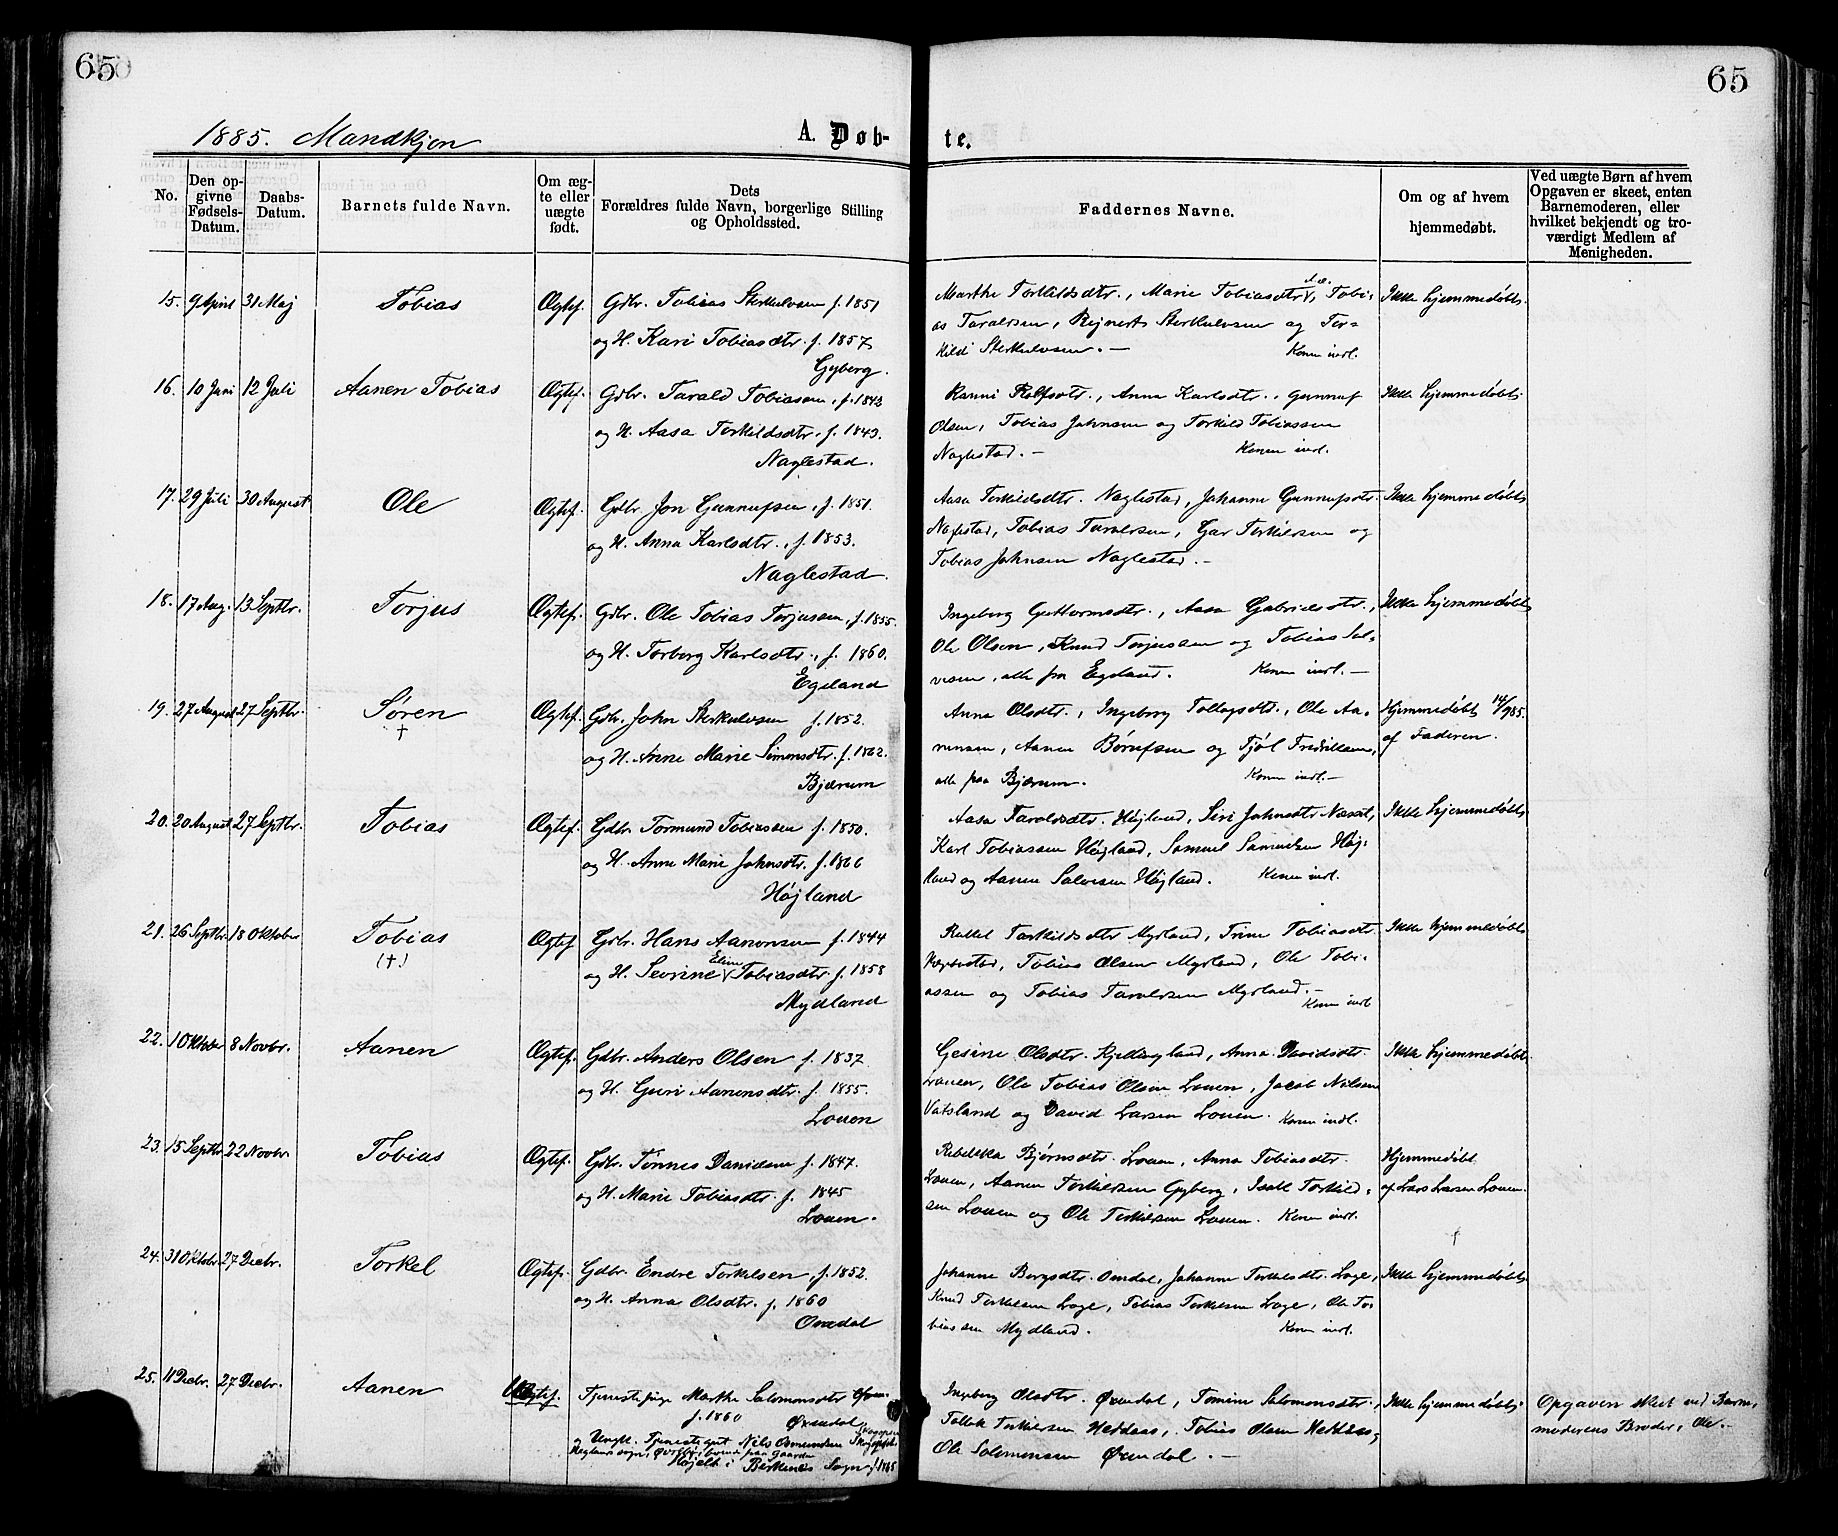 65
65
1885. Mandkjøn
A. Døb-
te.
No.
Den op-
givne
Fødsels-
Datum.
Daabs-
Datum.
Barnets fulde Navn.
Om æg-
te eller
uægte
født.
Dets
Forældres fulde Navn, borgerlige Stilling
og Opholdssted.
Faddernes Navne.
Om og af hvem
hjemmedøbt.
Ved uægte Børn af hvem
Opgaven er skeet, enten
Barnemoderen, eller
hvilket bekjendt og tro-
værdigt Medlem af
Menigheden.
15. 9 April 31 Maj Tobias Ægtef. Gdbr. Tobias Sterkulvsen f. 1851
og H. Kari Tobiasdtr. f. 1857
Gyberg.
Marthe Torkildsdtr., Marie Tobiasdtr, Tobi-
as Taraldsen, Rejnert Sterkulvsen og Tor-
kild Sterkulvsen. — Konen indl.
Ikke hjemmedøbt.
16. 10 Juni 12 Juli Aanen Tobias Ægtef. Gdbr. Tarald Tobiassen, f. 1843
og H. Aasa Torkildsdtr. f. 1843.
Naglestad.
Ranni Rolfsdtr., Anna Karlsdtr., Gunnuf
Olsen, Tobias Johnsen og Torkild Tobiassen
Naglestad. — Konen indl.
Ikke hjemmedøbt.
17. 29 Juli 30 August Ole Ægtef. Gdbr. Jon Gunnufsen, f. 1851.
og H. Anna Karlsdtr., f. 1853.
Naglestad.
Aasa Torkildsdtr. Naglestad, Johanne Gunnufsdtr.
Naglestad, Tobias Taraldsen, Torkildsen og
Tobias Johnsen Naglestad. —
Ikke hjemmedøbt
18. 17 Aug. 13 Septbr. Torjus Ægtef. Gdbr. Ole Tobias Torjussen, f. 1855.
og H. Torborg Karlsdtr., f. 1860.
Egeland
Ingeborg Guttormsdtr., Aasa Gabrielsdtr.,
Ole Olsen, Knud Torjussen og Tobias Sal-
vesen, alle fra Egeland. Konen indl. —
Ikke hjemmedøbt
19. 27 August 27 Septbr. Søren Ægtef. Gdbr. John Sterkulvsen f. 1852.
†
og H. Anne Marie Simonsdtr. f. 1862.
Bjærum
Anna Olsdtr., Ingeborg Tollagsdtr., Ole Aa-
nensen, Aanen Børufsen og Tjøl Fredriksen,
alle paa Bjærum. Konen indl. —
Hjemmedøbt 14/9 85.
af Faderen.
20. 20 August 27 Septbr. Tobias Ægtef. Gdbr. Tormund Tobiassen f. 1850.
og H. Anne Marie Johnsdtr. f. 1866
Højland
Aasa Taraldsdtr. Højland, Siri Johnsdtr
Karl Tobiassen Højland, Samuel Samuelsen Høj-
land og Aanen Salvesen Højland. Konen indl.
Ikke hjemmedøbt.
21. 26 Septbr. 18 Oktober Tobias Ægtef. Gdbr. Hans Aanensen f. 1844
(†)
og H. Sevrine Eline Tobiasdtr. f. 1858
Mydland
Rakkel Torkildsdtr Mydland, Trine Tobiasdtr.
Tobias Olsen Mydland, Ole Tobi-
assen og Tobias Taraldsen Mydland. —
Konen indl
Ikke hjemmedøbt
22. 1 Oktober 8 Novbr. Aanen Ægtef. Gdbr. Anders Olsen f. 1837
og H. Guri Aanensdtr. f. 1855.
Louen
Gesine Olsdtr. Anna Davidsdtr.
Louen, Ole Tobias Olsen Louen, Jacob Nilsen
Vatsland og David Larsen Louen. Konen indl.
Ikke hjemmedøbt.
23. 15 Septbr 22 Novbr. Tobias Ægtef. Gdbr. Tønnes Danielsen f. 1847.
og H. Marie Tobiasdtr. f. 1845
Louen.
Rebekka Bjørnsdtr. Louen, Anna Tobiasdtr.
Louen, Aanen Torkildsen Gyberg, Torkild-
sen Louen og Ole Torkildsen Louen. Konen indl.
Hjemmedøbt
af Lars Larsen Louen.
†
24. 31 Oktobr. 27 Decbr. Torkel Ægtef. Gdbr. Endre Torkelsen f. 1852.
og H. Anna Olsdtr. f. 1860
Omdal
Johanne Omdal, Johanne Torkelsdtr. Loge,
Knud Torkelsen Loge, Tobias Torkelsen Loge, Ole To-
biassen Mydland. Konen indl.
Ikke hjemmedøbt
25. 11 Decbr. 27 Decbr. Aanen Uægtef. Tjenestepige Marthe Salomonsdtr
f. 1860 Øvendal
og Ungk. Tjenestegut Nils Osmundsen
paa Gaarden
i Birkenes Sogn f. 1865
Ingeborg Olsdtr. Øvendal, Tomine Salomonsdtr.,
Tollak Torkelsen Heddaas, Tobias Olsen Heddaas,
Ole Salomonsen Øvendal. —
Ikke hjemmedøbt.
Opgaven skeet ved Barne-
moderens Broder, Ole.